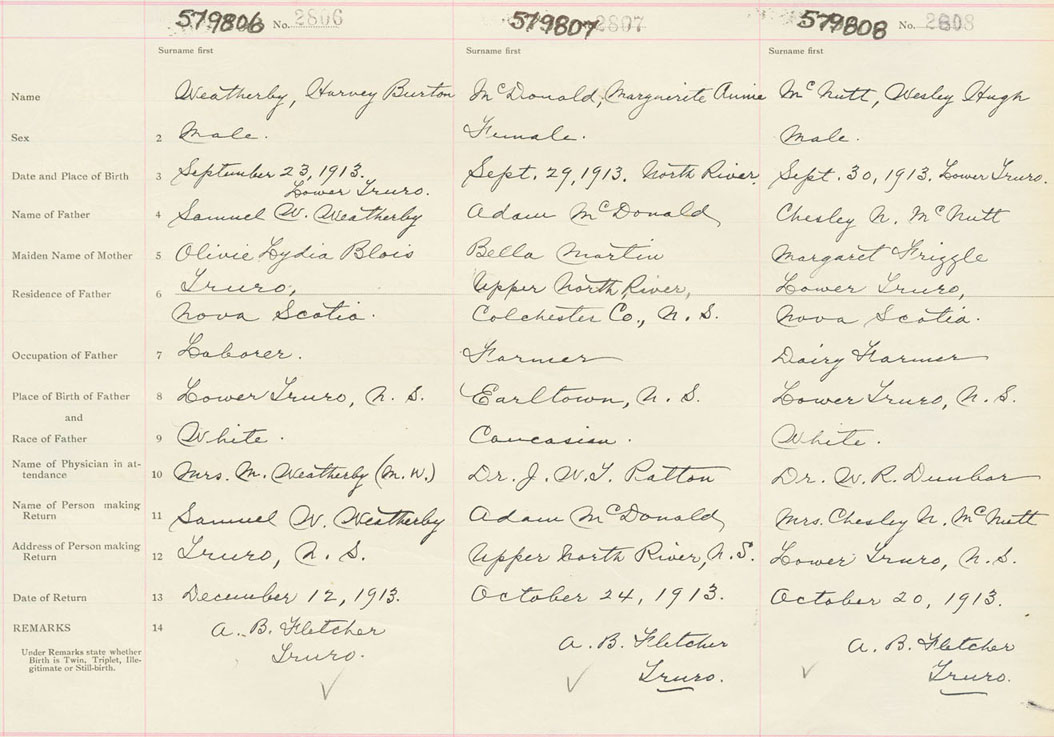 579806 No. 2806 579807 2807 579808 No. 2808
Surname first Surname first Surname first
Name Weatherby, Harvey Burton McDonald, Marguerite Annie McNutt, Wesley Hugh
Sex 2 Male. Female. Male.
Date and Place of Birth 3 September 23, 1913. Sept. 29, 1913. North River. Sept. 30, 1913. Lower Truro.
Lower Truro.
Name of Father 4 Samuel W. Weatherby Adam McDonald Chesley N. McNutt
Maiden Name of Mother 5 Olivie Lydia Blois Bella Martin Margaret Frizzle
Residence of Father 6 Truro, Upper North River, Lower Truro,
Nova Scotia. Colchester Co., N. S. Nova Scotia.
Occupation of Father 7 Laborer. Farmer Dairy Farmer
Place of Birth of Father 8 Lower Truro, N. S. Earltown, N. S. Lower Truro, N. S.
and
Race of Father 9 White. Caucasian. White.
Name of Physician in at-
tendance 10 Mrs. M. Weatherby (M. W.) Dr. J. W. T. Patton Dr. W. R. Dunbar
Name of Person making
Return 11 Samuel W. Weatherby Adam McDonald Mrs. Chesley N. McNutt
Address of Person making
Return 12 Truro, N. S. Upper North River, N. S. Lower Truro, N. S.
Date of Return 13 December 12, 1913. October 24, 1913. October 20, 1913.
REMARKS 14 A. B. Fletcher A. B. Fletcher A. B. Fletcher
Under Remarks state whether
Birth is Twin, Triplet, Ille-
gitimate or Still-birth.
Truro. Truro. Truro.